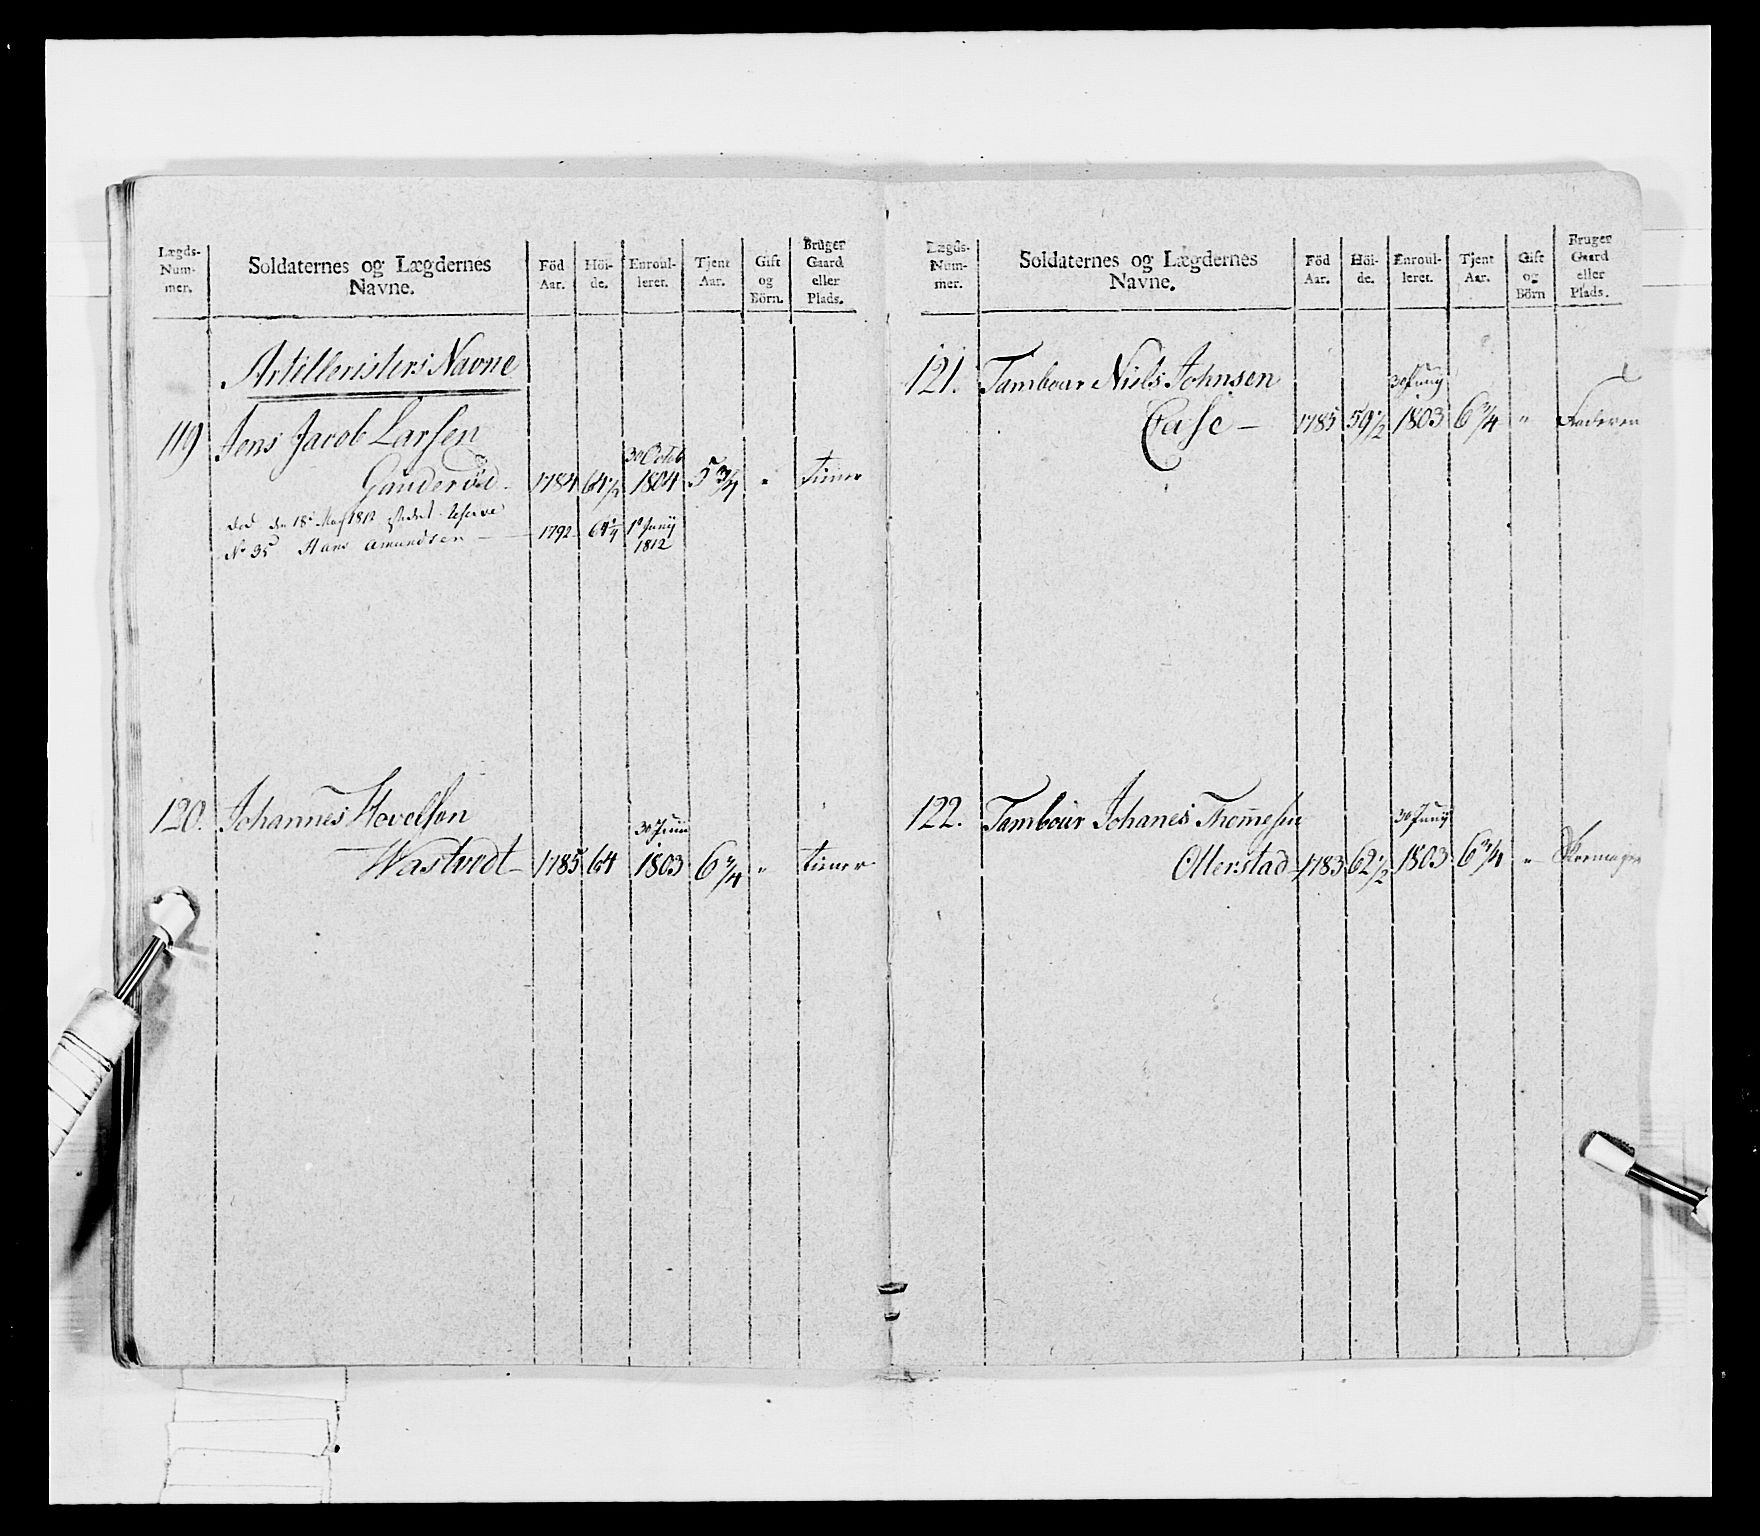 Lægds-
Num-
mer.
Soldaternes og Lægdernes
Navne.
Föd
Aar.
Höi-
de.
Enroul-
leret.
Tjent
Aar.
Gift
og
Börn.
Bruger
Gaard
eller
Plads.
Artilleristers Navne
119 Jens Jacob Larsen
30 Octob
1784 64 1/2 1804 5 3/4 " tiener
død den 18 May 1812 istedet Reserve
No 35 Hans Amundsen - 1792 64 1/4 1e Junij
1812
120. Johannes Hovelsen
30 Junii
Wastvedt - 1785 64 1803 6 3/4 " tiener
Lægds-
Num-
mer.
Soldaternes og Lægdernes
Navne.
Föd
Aar.
Höi-
de.
Enroul-
leret.
Tjent
Aar.
Gift
og
Börn
Bruger
Gaard
eller
Plads.
121. Tambour Niels Johnsen
30 Junij
Case - 1785 59 1/2 1803 6 3/4 " Faderen
122. Tambour Johanes Thomesen
30 Junij
Ollerstad - 1783 62 1/2 1803 6 3/4 " Skomager